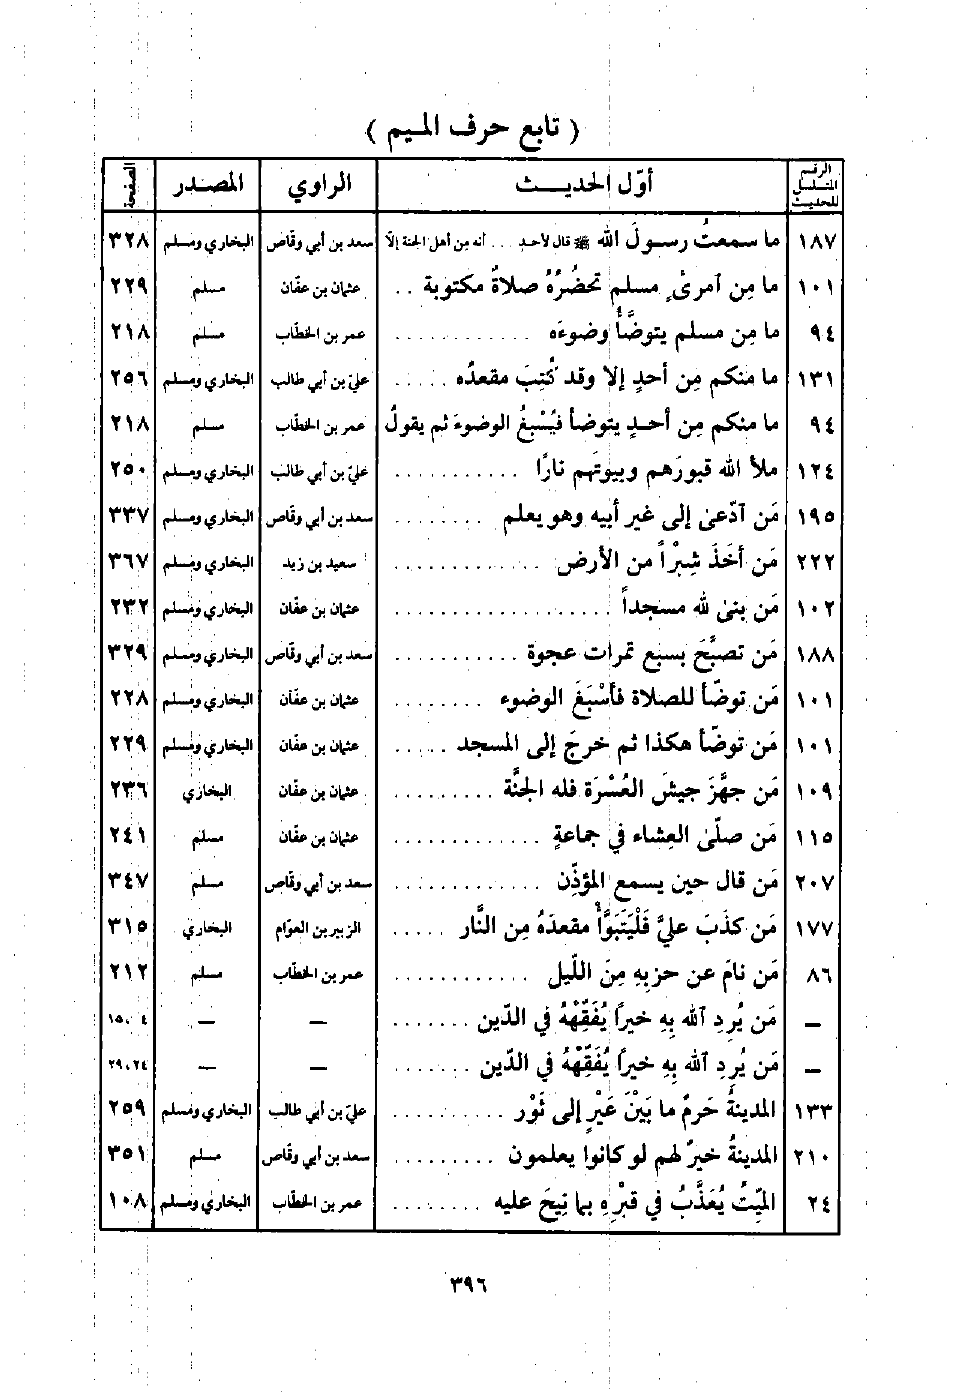 ( تابع حرف الميم )
الرقم المتسلسل للحديث | أوّل الحديث | الراوي | المصدر | الصفحة
١٨٧ | ما سمعتُ رسولَ الله ﷺ قال لأحدٍ .... أنه مِن أهل الجنة إلّا | سعد بن أبي وقاص | البخاري ومسلم | ٣٢٨
١٠١ | ما مِن آمرىءٍ مسلم تحضُرُهُ صلاةٌ مكتوبة .. | عثمان بن عفّان | مسلم | ٢٢٩
٩٤ | ما مِن مسلم يتوضَّأُ وضوءَه ............ | عمر بن الخطّاب | مسلم | ٢١٨
١٣١ | ما منكم مِن أحدٍ إلا وقد كُتِبَ مقعدُه ..... | عليّ بن أبي طالب | البخاري ومسلم | ٢٥٦
٩٤ | ما منكم مِن أحدٍ يتوضأ فيُسْبِغُ الوضوءَ ثم يقولُ | عمر بن الخطّاب | مسلم | ٢١٨
١٢٤ | ملأ الله قبورَهم وبيوتَهم نارًا ........... | عليّ بن أبي طالب | البخاري ومسلم | ٢٥٠
١٩٥ | مَن آدّعىٰ إلى غير أبيه وهو يعلم ........ | سعد بن أبي وقاص | البخاري ومسلم | ٣٣٧
٢٢٢ | مَن أخَذَ شِبْراً من الأرض ............. | سعيد بن زيد | البخاري ومسلم | ٣٦٧
١٠٢ | مَن بنىٰ لله مسجداً .................... | عثمان بن عفّان | البخاري ومسلم | ٢٣٢
١٨٨ | مَن تصبَّحَ بسبع تمرات عجوة ............ | سعد بن أبي وقّاص | البخاري ومسلم | ٣٢٩
١٠١ | مَن توضّأ للصلاة فأسْبَغَ الوضوء ......... | عثمان بن عفّان | البخاري ومسلم | ٢٢٨
١٠١ | مَن توضّأ هكذا ثم خرجَ إلى المسجد ..... | عثمان بن عفّان | البخاري ومسلم | ٢٢٩
١٠٩ | مَن جهَّزَ جيشَ العُسْرَة فله الجنَّة .......... | عثمان بن عفّان | البخاري | ٢٣٦
١١٥ | مَن صلّىٰ العِشاء في جماعةٍ ............. | عثمان بن عفّان | مسلم | ٢٤١
٢٠٧ | مَن قال حين يسمع المؤذّن ............. | سعد بن أبي وقّاص | مسلم | ٣٤٧
١٧٧ | مَن كذَبَ عليَّ فَلْيَتَبَوَّأْ مقعدَهُ مِن النَّار ..... | الزبير بن العوّام | البخاري | ٣١٥
٨٦ | مَن نامَ عن حزبِهِ مِنَ اللّيل ............. | عمر بن الخطّاب | مسلم | ٢١٢
— | مَن يُرِدِ آلله بِهِ خيراً يُفَقّهْهُ في الدّين ....... | — | — | ١٥،٤
— | مَن يُرِدِ آلله بِهِ خيراً يُفَقِّهْهُ في الدّين ....... | — | — | ٢٩،٢٤
١٣٣ | المدينةُ حَرمٌ ما بَيْنَ عَيْرٍ إلى ثَوْر .......... | عليّ بن أبي طالب | البخاري ومسلم | ٢٥٩
٢١٠ | المدينةُ خيرٌ لهم لو كانوا يعلمون ......... | سعد بن أبي وقّاص | مسلم | ٣٥١
٢٤ | الميّتُ يُعَذَّبُ في قبْرِهِ بما نِيحَ عليه ........ | عمر بن الخطّاب | البخاري ومسلم | ١٠٨
٣٩٦